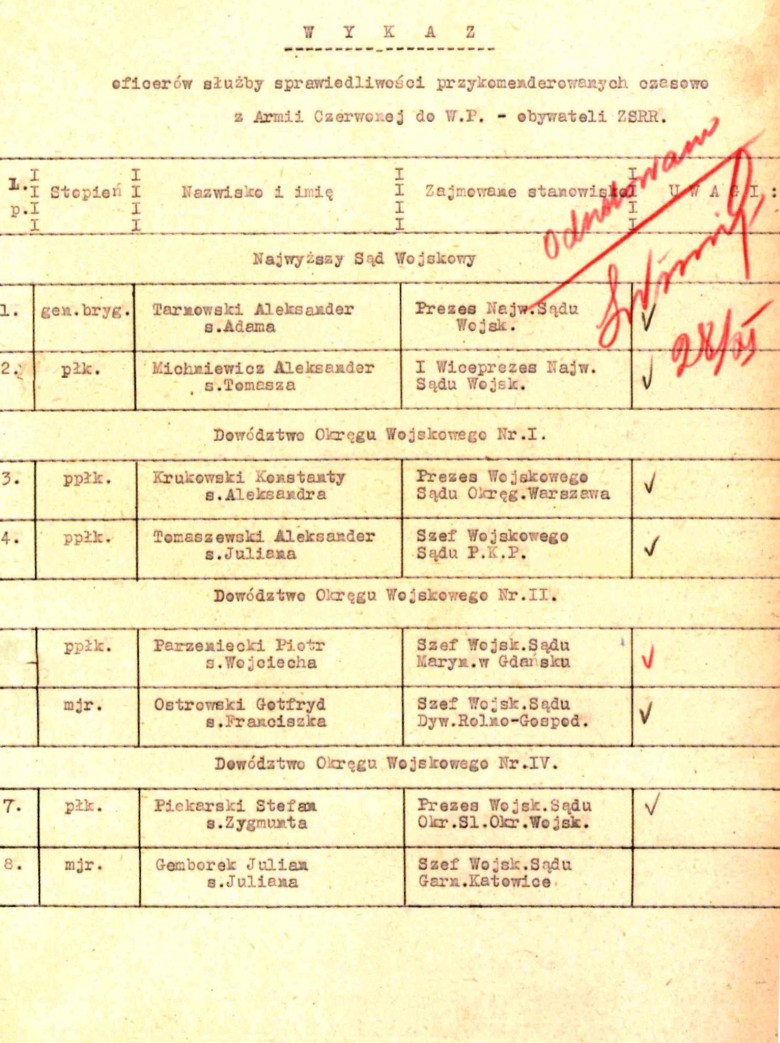 W Y K A Z
oficerów służby sprawiedliwości przykomenderowanych czasowo
z Armii Czerwonej do W.P. - obywateli ZSRR.
L.p. Stopień Nazwisko i imię Zajmowane stanowisko U W A G I :
28/XI
Najwyższy Sąd Wojskowy
1. gen.bryg. Tarnowski Aleksander Prezes Najw.Sądu
s.Adama Wojsk.
2. płk. Michniewicz Aleksander I Wiceprezes Najw.
s.Tomasza Sądu Wojsk.
Dowództwo Okręgu Wojskowego Nr.I.
3. ppłk. Krukowski Konstanty Prezes Wojskowego
s.Aleksandra Sądu Okręg.Warszawa
4. ppłk. Tomaszewski Aleksander Szef Wojskowego
s.Juliana Sądu P.K.P.
Dowództwo Okręgu Wojskowego Nr.II.
ppłk. Parzeniecki Piotr Szef Wojsk.Sądu
s.Wojciecha Maryn.w Gdańsku
mjr. Ostrowski Gotfryd Szef Wojsk.Sądu
s.Franciszka Dyw.Rolno-Gospod.
Dowództwo Okręgu Wojskowego Nr.IV.
7. płk. Piekarski Stefan Prezes Wojsk.Sądu
s.Zygmunta Okr.Sl.Okr.Wojsk.
8. mjr. Gemborek Julian Szef Wojsk.Sądu
s.Juliana Garn.Katowice